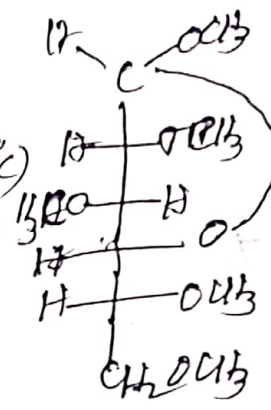 H OCH3
C
c)
H OCH3
H3CO H
H O
H OCH3
CH2OCH3